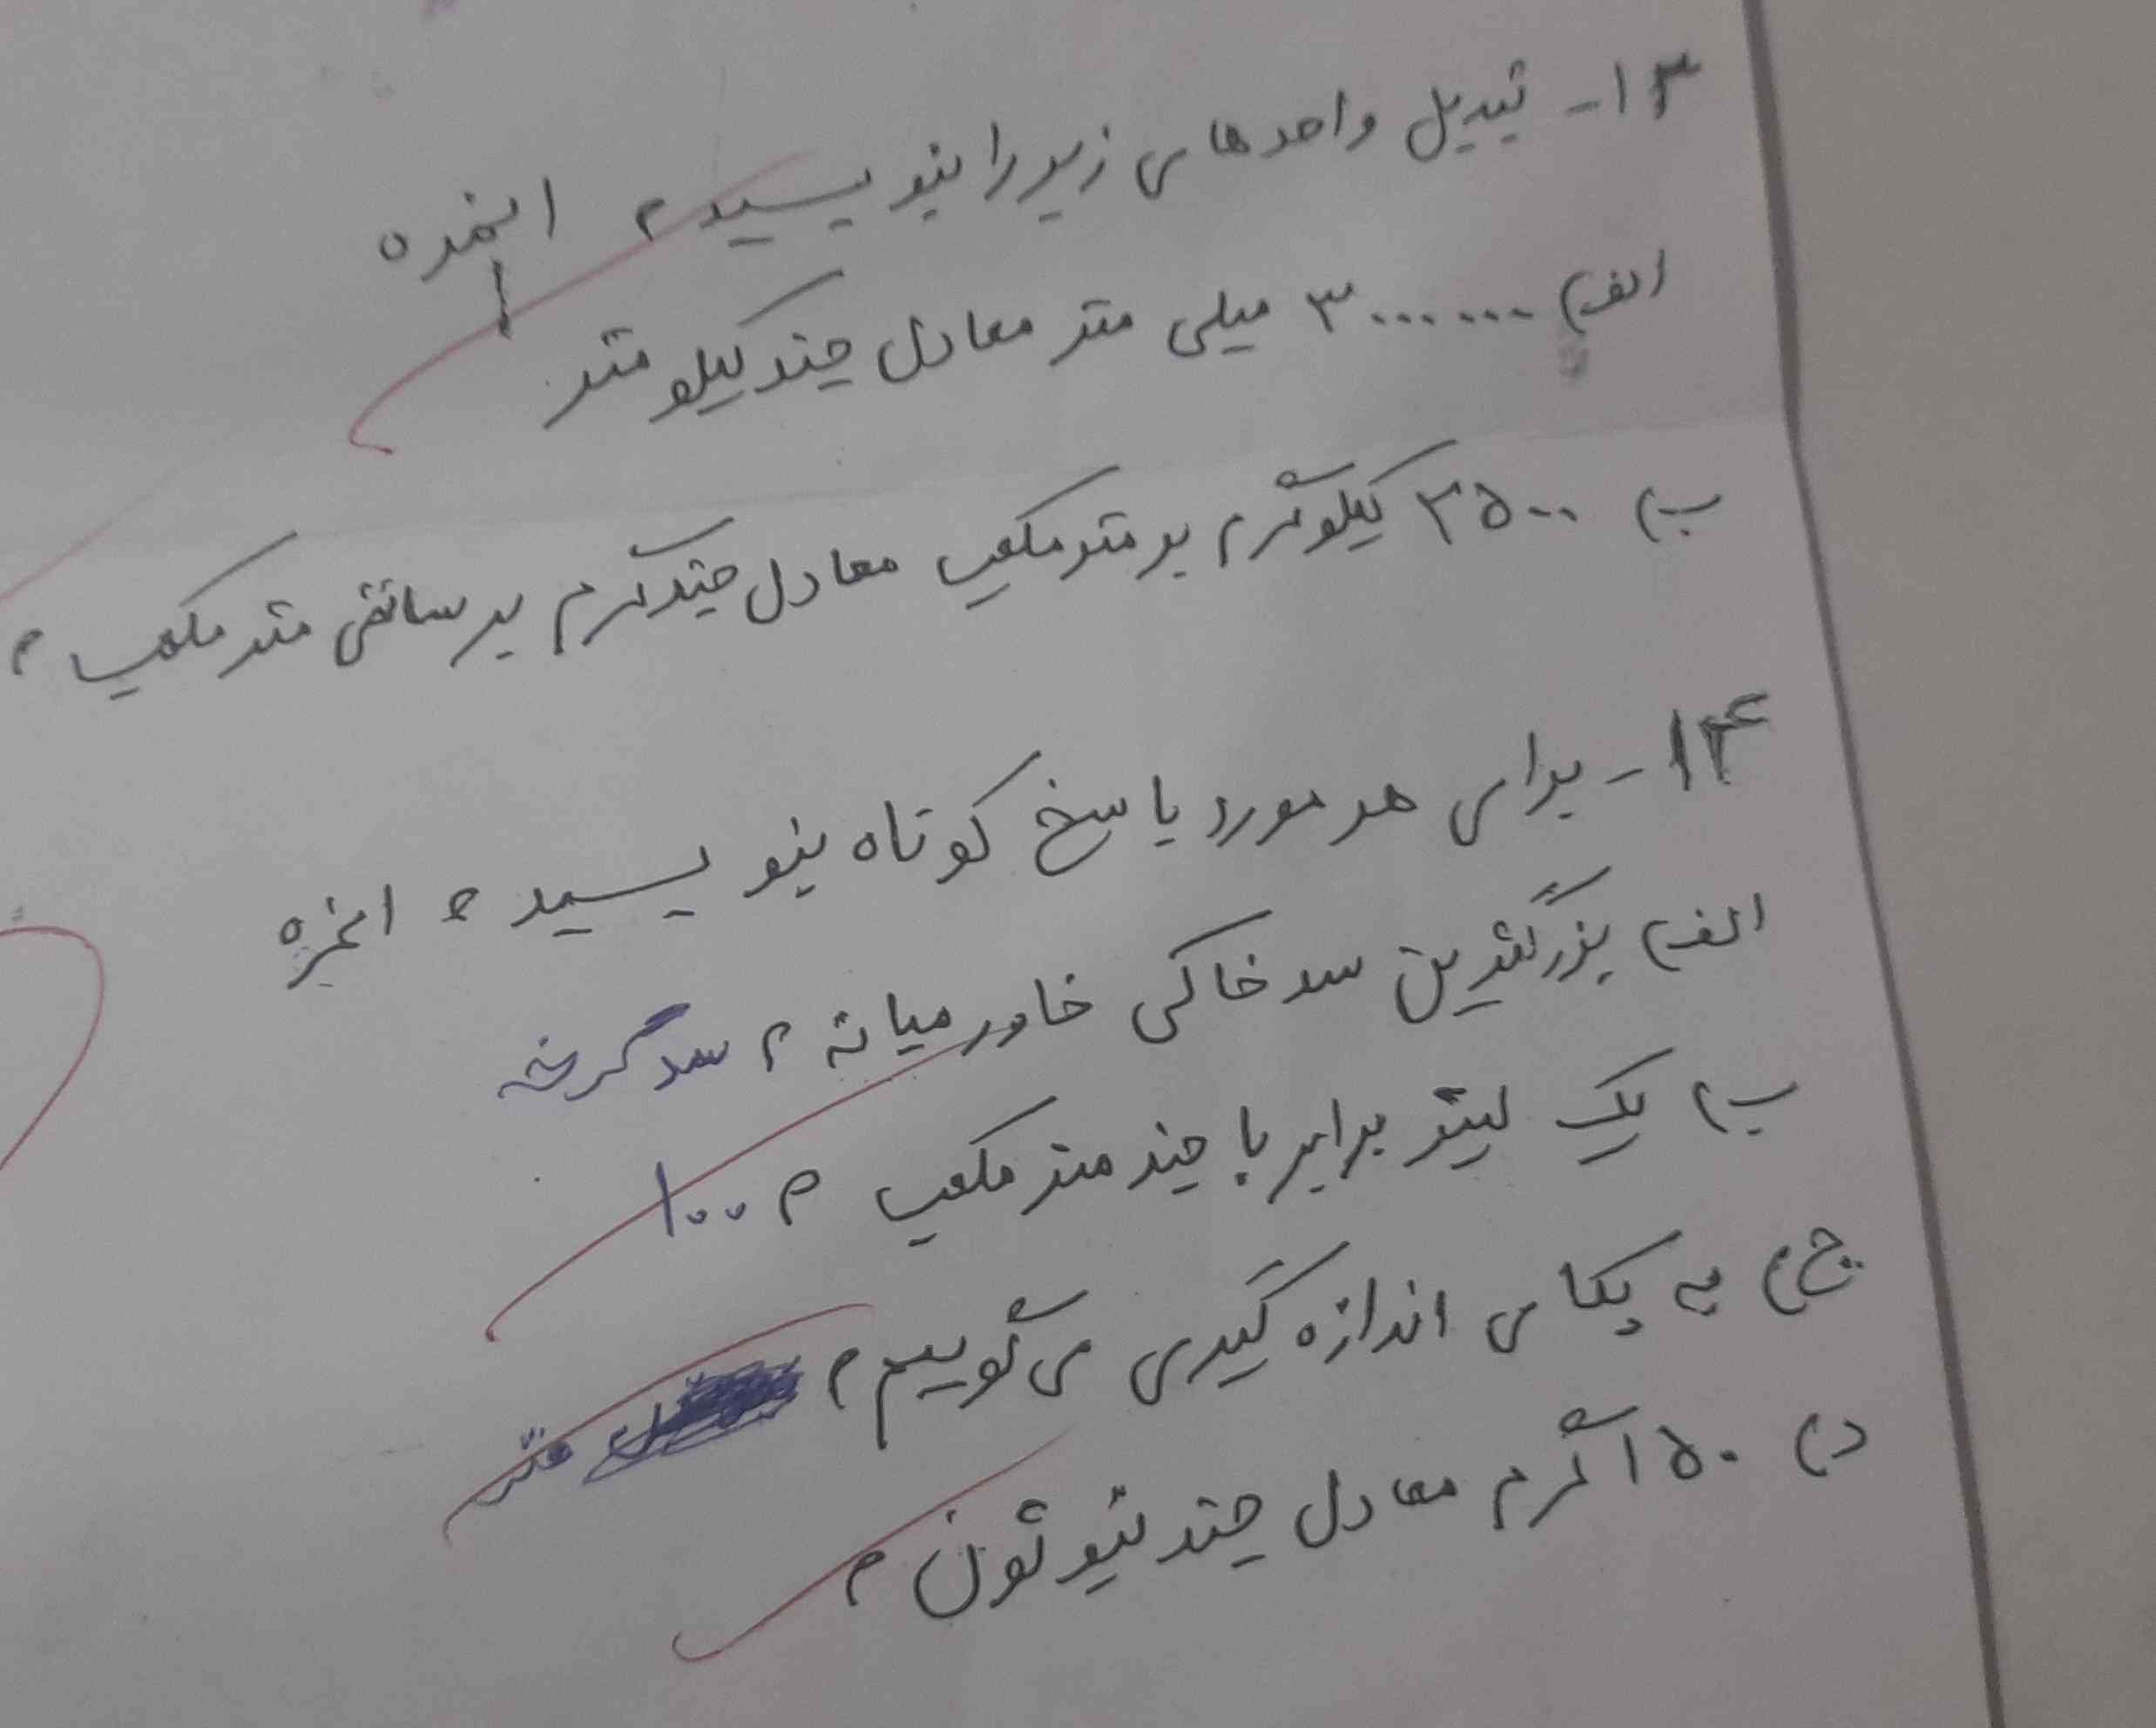 ۱۳- تبدیل واحدهای زیر را بنویسید؟ ۱نمره
الف) ۳۰۰۰۰۰۰ میلی متر معادل چند کیلومتر
ب) ۲۵۰۰ کیلوگرم بر متر مکعب معادل چند گرم بر سانتی متر مکعب؟
۱۴- برای هر مورد پاسخ کوتاه بنویسید؟ ۱نمره
الف) بزرگترین سد خاکی خاورمیانه؟ سد کرخه
ب) یک لیتر برابر با چند متر مکعب؟ ۱۰۰
ج) به یکای اندازه گیری می گوییم؟ متر
د) ۱۵۰ گرم معادل چند نیوتون؟